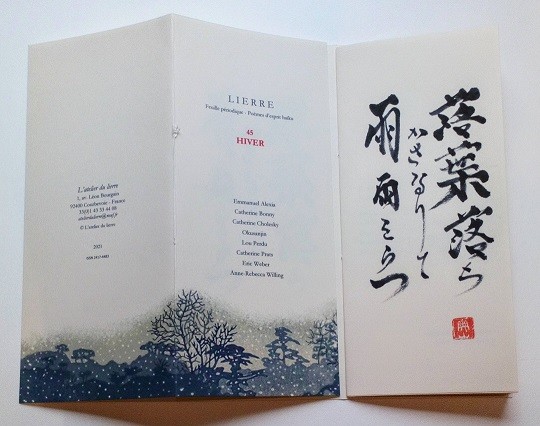 L'atelier du lierre
1, av. Léon Bourgain
92400 Courbevoie - France
© L'atelier du lierre
2021
LIERRE
Feuille périodique - Poèmes d'esprit haïku
45
HIVER
Emmanuel Alexia
Catherine Bonny
Catherine Cholesky
Okusanjin
Lou Perdu
Catherine Praes
Eric Weber
Anne-Rebecca Willing
落葉落ち
かさなりて
雨雨をうつ